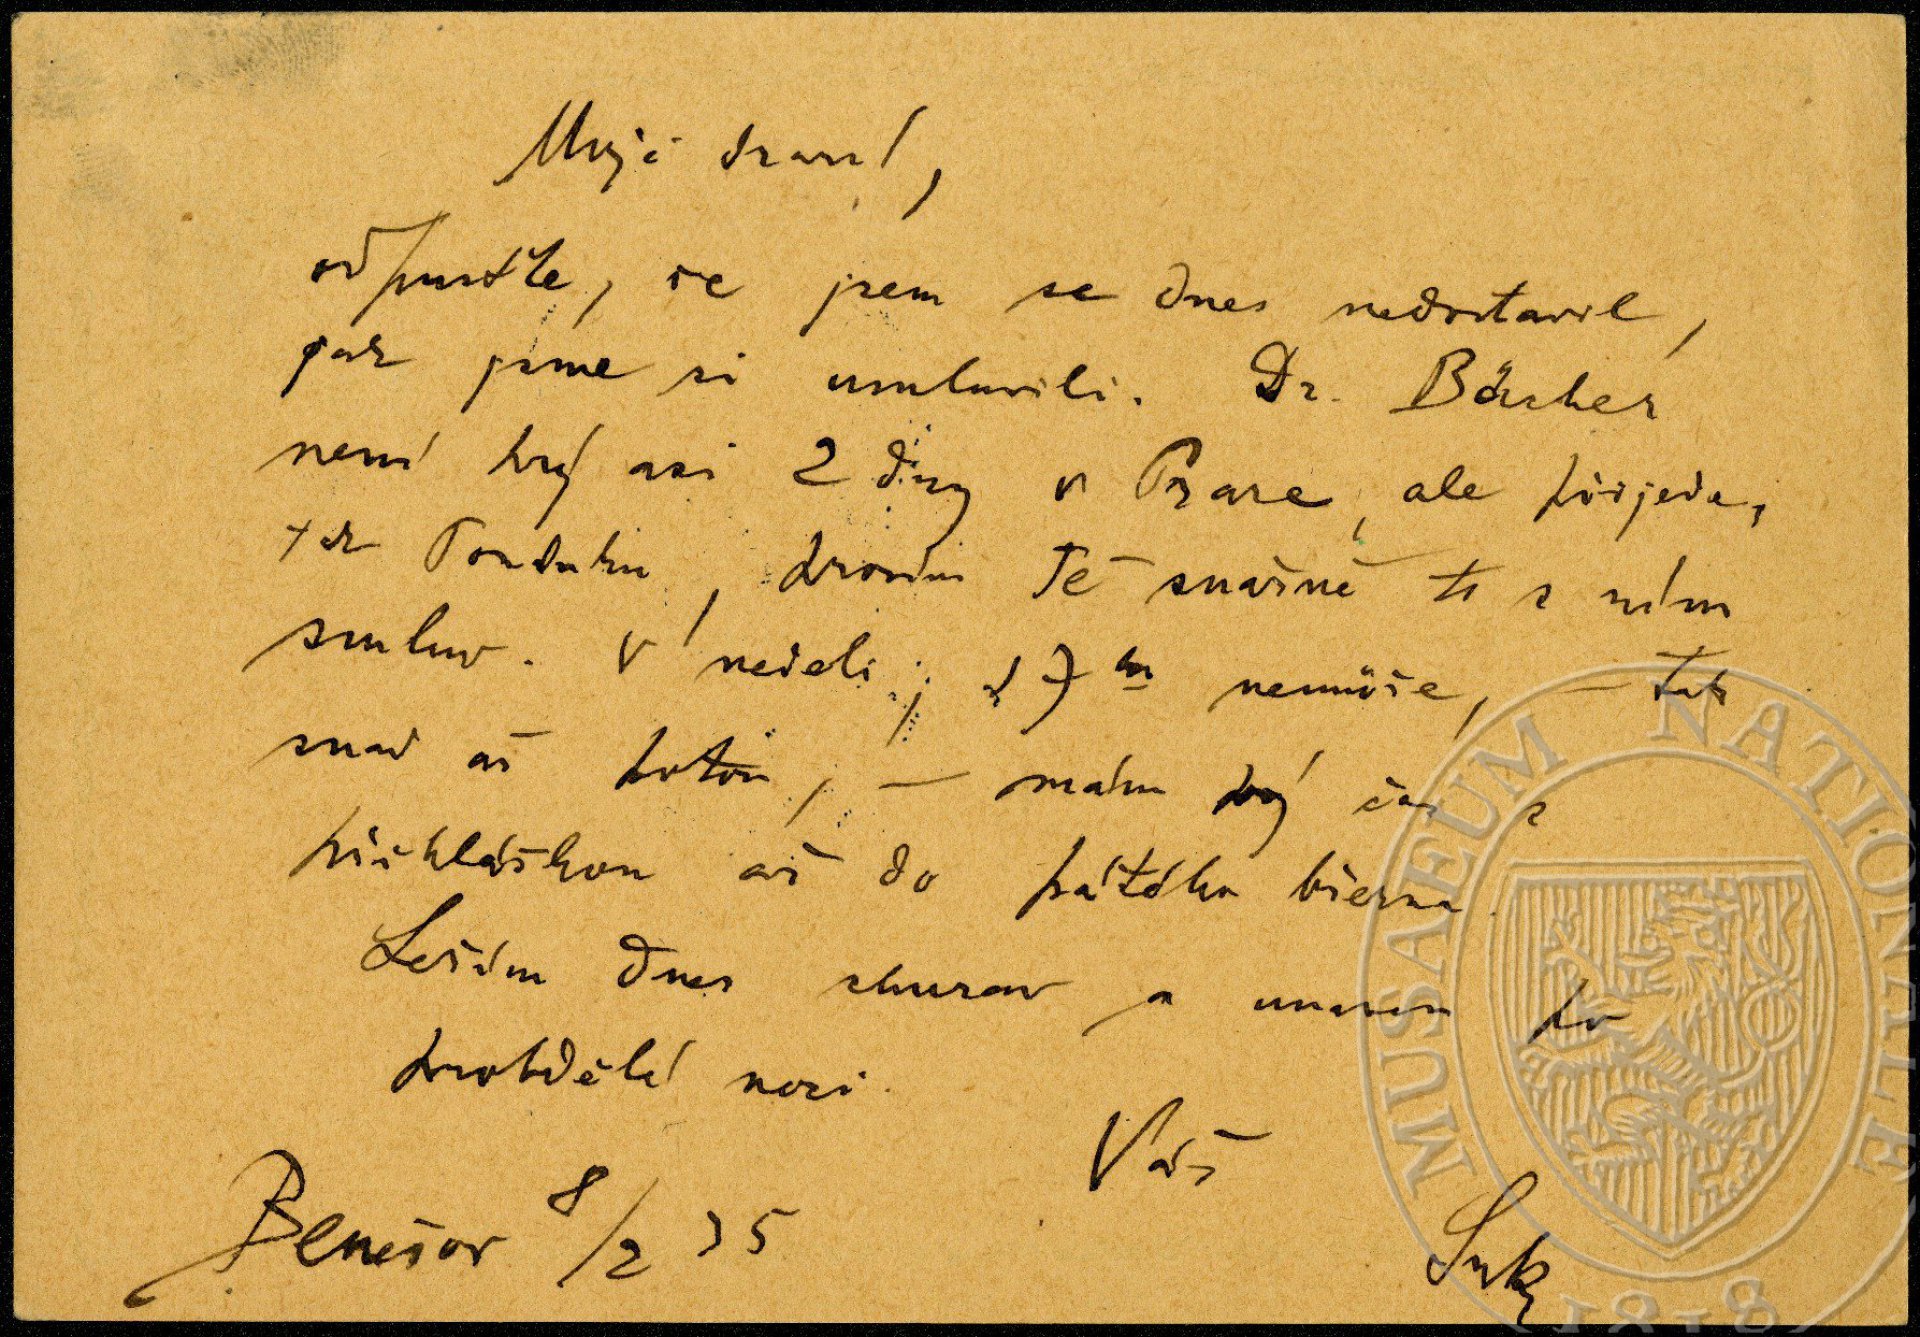 Moji drazí,
odpusťte, že jsem se dnes nedostavil,
jak jsme si umluvili. Dr. Bäcker
není prý asi 2 dny v Praze, ale přijede,
tak Ponduhu, prosím Tě snažně to s ním
smluv. V neděli, 17ho nemůže, – tak
snad až potom, – mám prý čas s
přihláškou až do pátého března.
Ležím dnes churav a unaven po
probdělé noci.
Váš
Suk
Benešov 8/2 35
MUSAEUM NATIONALE
1818